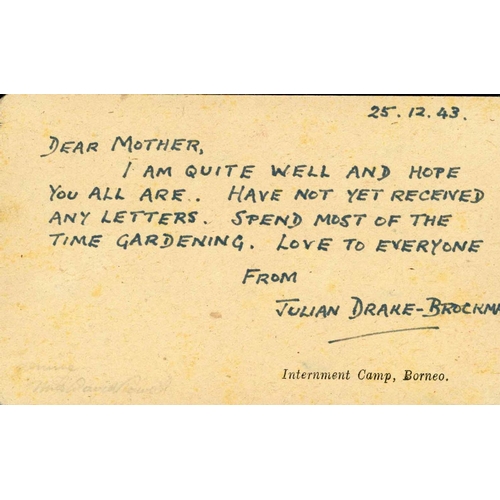 25.12.43.
DEAR MOTHER,
I AM QUITE WELL AND HOPE
YOU ALL ARE.. HAVE NOT YET RECEIVED
ANY LETTERS. SPEND MOST OF THE
TIME GARDENING. LOVE TO EVERYONE
FROM
JULIAN DRAKE-BROCKMA
Internment Camp, Borneo.